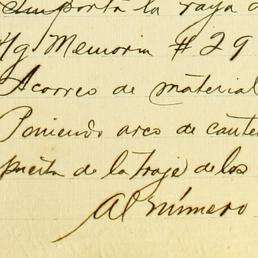 importa la raya d
Memoria # 29
Acarreo de material
Poniendo arco de cante
puerta de la troje de los
Al número